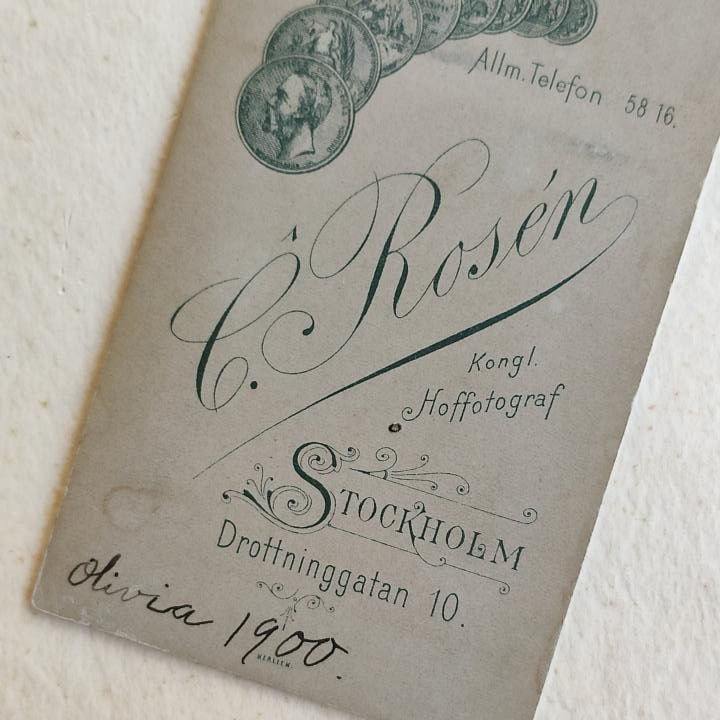 Allm. Telefon 58 16.
C. Rosén
Kongl.
Hoffotograf
STOCKHOLM
Drottninggatan 10.
Olivia 1900.